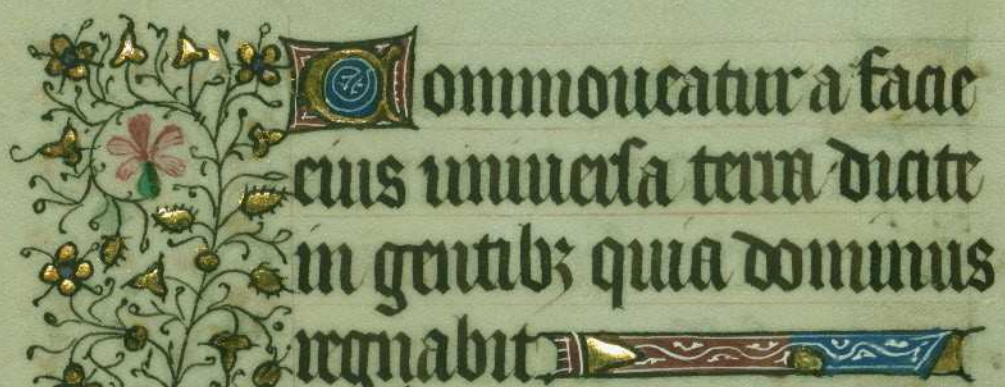 Commoueatur a facie
eius uniuersa terra dicite
in gentibꝫ quia dominus
regnabit